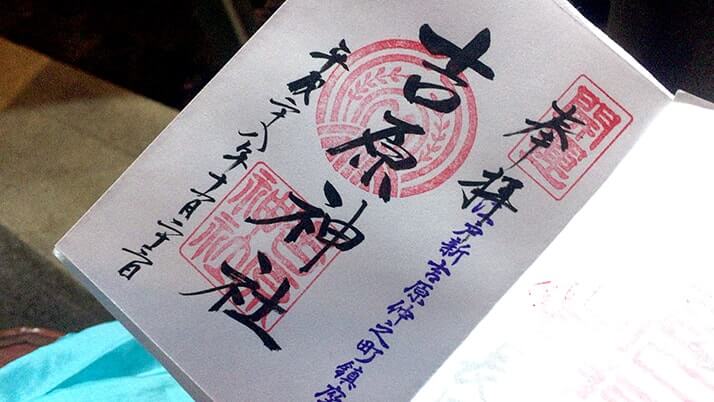 奉拝
江戸新吉原仲之町鎮座
吉原神社
吉原神社
平成二十八年十一月二十三日